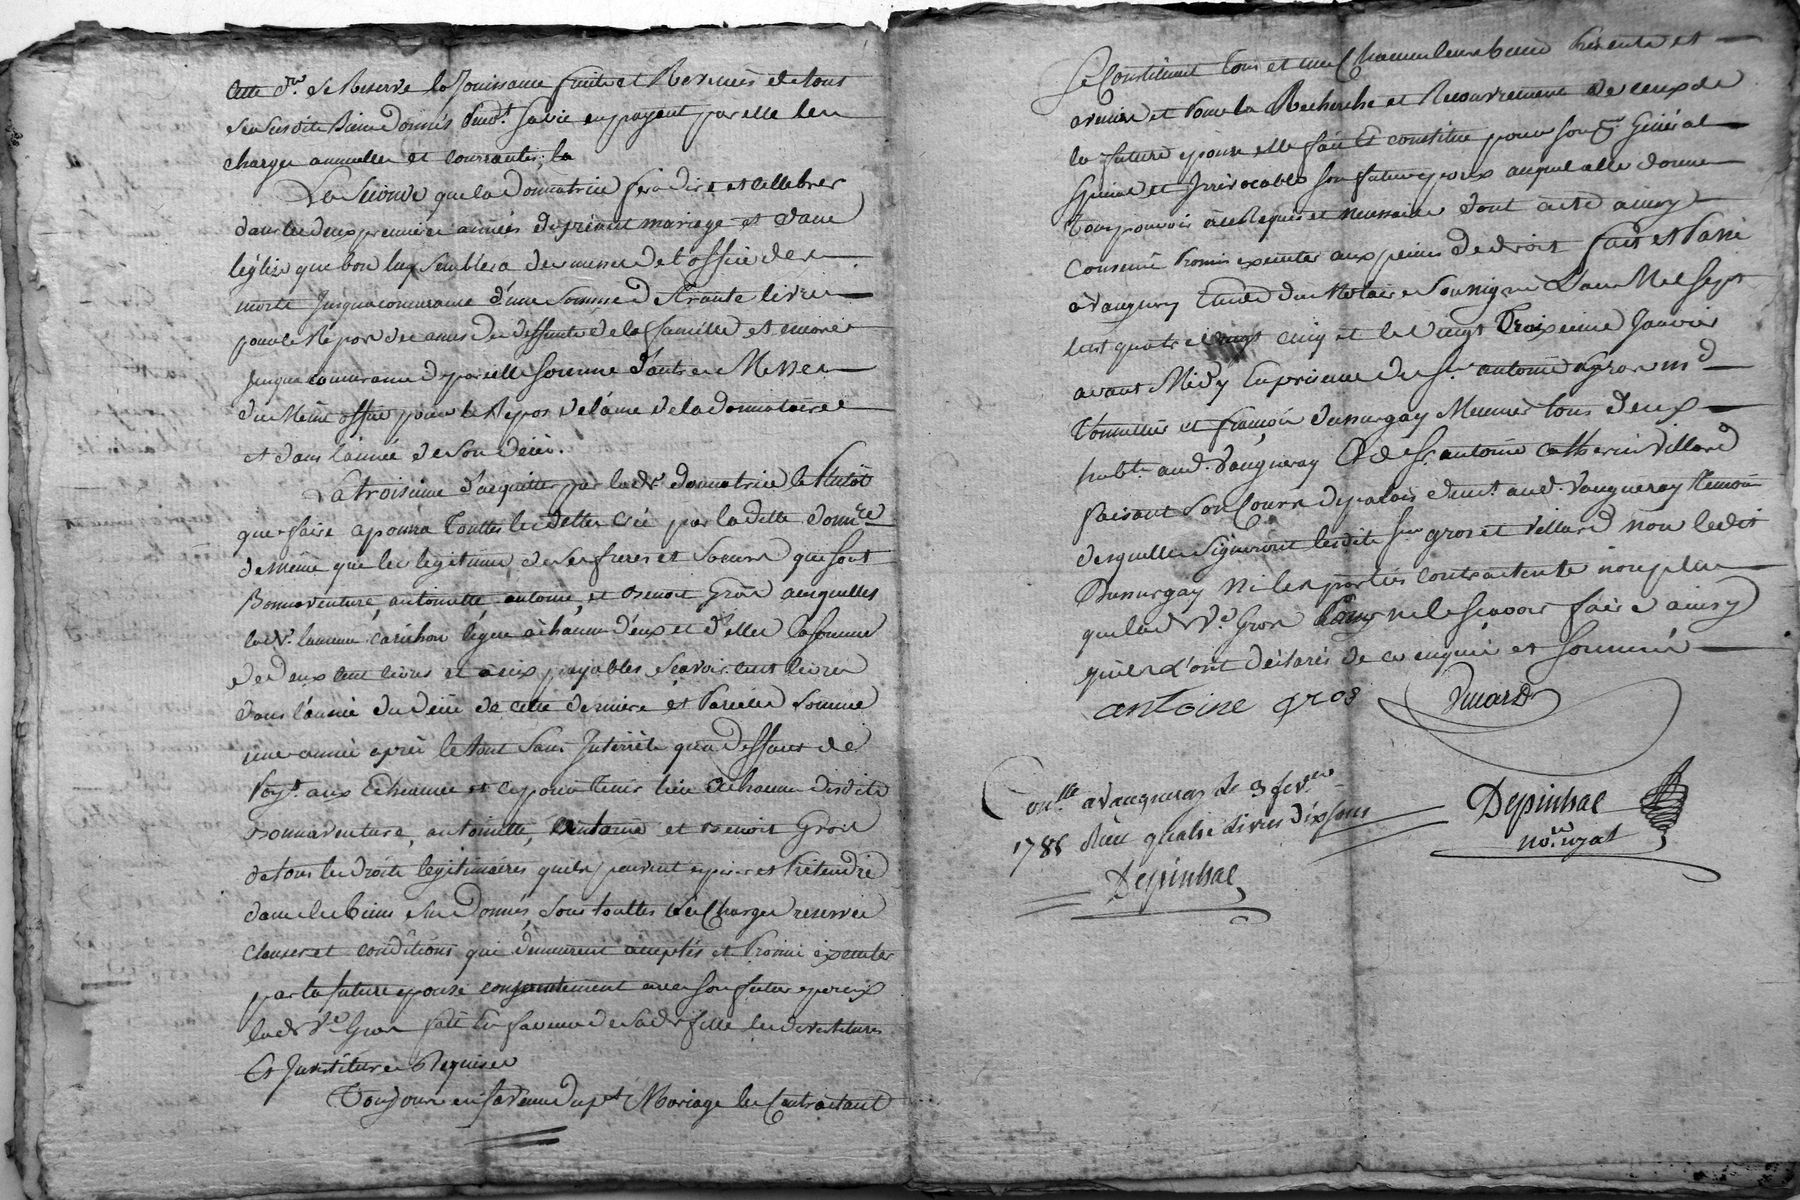 cette d.re se Reserve la Jouissance fruits et Revenus de tous
ses susdits Biens donnés pend.t sa vie en payant par elle les
charges annuelles et courrantes; la
La seconde que la donnatrice fera dire et cellebrer
dans les deux premieres années du présent mariage et dans
l'église que bon luy semblera des messes de l'office des
morts jusqua concurrance d'une somme de trante livres
pour le Répos des ames des deffunts de la famille et encore
jusqua concurrance de pareille somme d'autres Messes
du Même office pour le Repos de l'ame de la donnatrice
et dans l'année de son décès.
La troisieme d'acquitter par lad. donnatrice le Plutôt
que faire ce poura touttes les dettes crée par la ditte donn.ce
de même que les legitimes de ses freres et Soeurs qui sont
Bonnaventure, antoinette, antoine, et Benoit Gros ausquelles
lad. v.e légue à chacun d'eux et d'elles la somme
de deux cent livres et à eux payables Scavoir cent livres
dans l'année du décés de cette derniere et Pareille somme
une année après le tout sans Interrêts qu'a deffaut de
Pay.t aux Echeances et ce pour tenir lieu a chacun desdits
Bonnaventure, antoinette, antoine et Benoit Gros
de tous les droits legitimaires quils peuvent esperer et Prétendre
dans les biens sus Donnés, sous touttes les Charges reserves
clauses et conditions qui demeurent acceptés et Promis éxecuter
par la future epouse conjointement avec son futur epoux
lad. V.e Gros fait En faveur de sad. fille les devestitures
Et Investitures Requises
Toujours en faveur du p.t Mariage les Contractant
Se Constituent tous et un Chacun leurs biens Présents et
avenir et Pour la Recherche et Recouvrement de ceux de
la future epouse elle fait Et constitue pour son P. Général
Spécial et Irrévocable son futur epoux auquel elle donne
tous pouvoir à ce Requis et necessaire dont acte ainsy
Convenu Promis executer aux peines de droit fait et Passé
a vaugneray Etude du Notaire Soussigné L'an Mil Sept
cent quatre vingt cinq et le Vingt Troixieme Janvier
avant Midy En présence du S.r antoine Gros m.d
Tonnellier et françois dussurgay Meunier tous deux
habt. aud. Vaugneray Et de S.r antoine catherin Villard
faisant Son Cours de palais dem.t aud. Vaugneray temoins
desquelles Signeront lesdits S.rs gros et Villard non ledit
Dussurgay Ni les parties contractente non plus
que lad. V.e Gros Pour ne le sçavoir faire ainsy
quils l'ont déclarés de ce enquis et sommés
antoine gros Vilard
Con.lle a vaugneray le 3 fév.er
1785 Reçu quatre livres dix sous
Depinhac
Depinhac
no.re royal